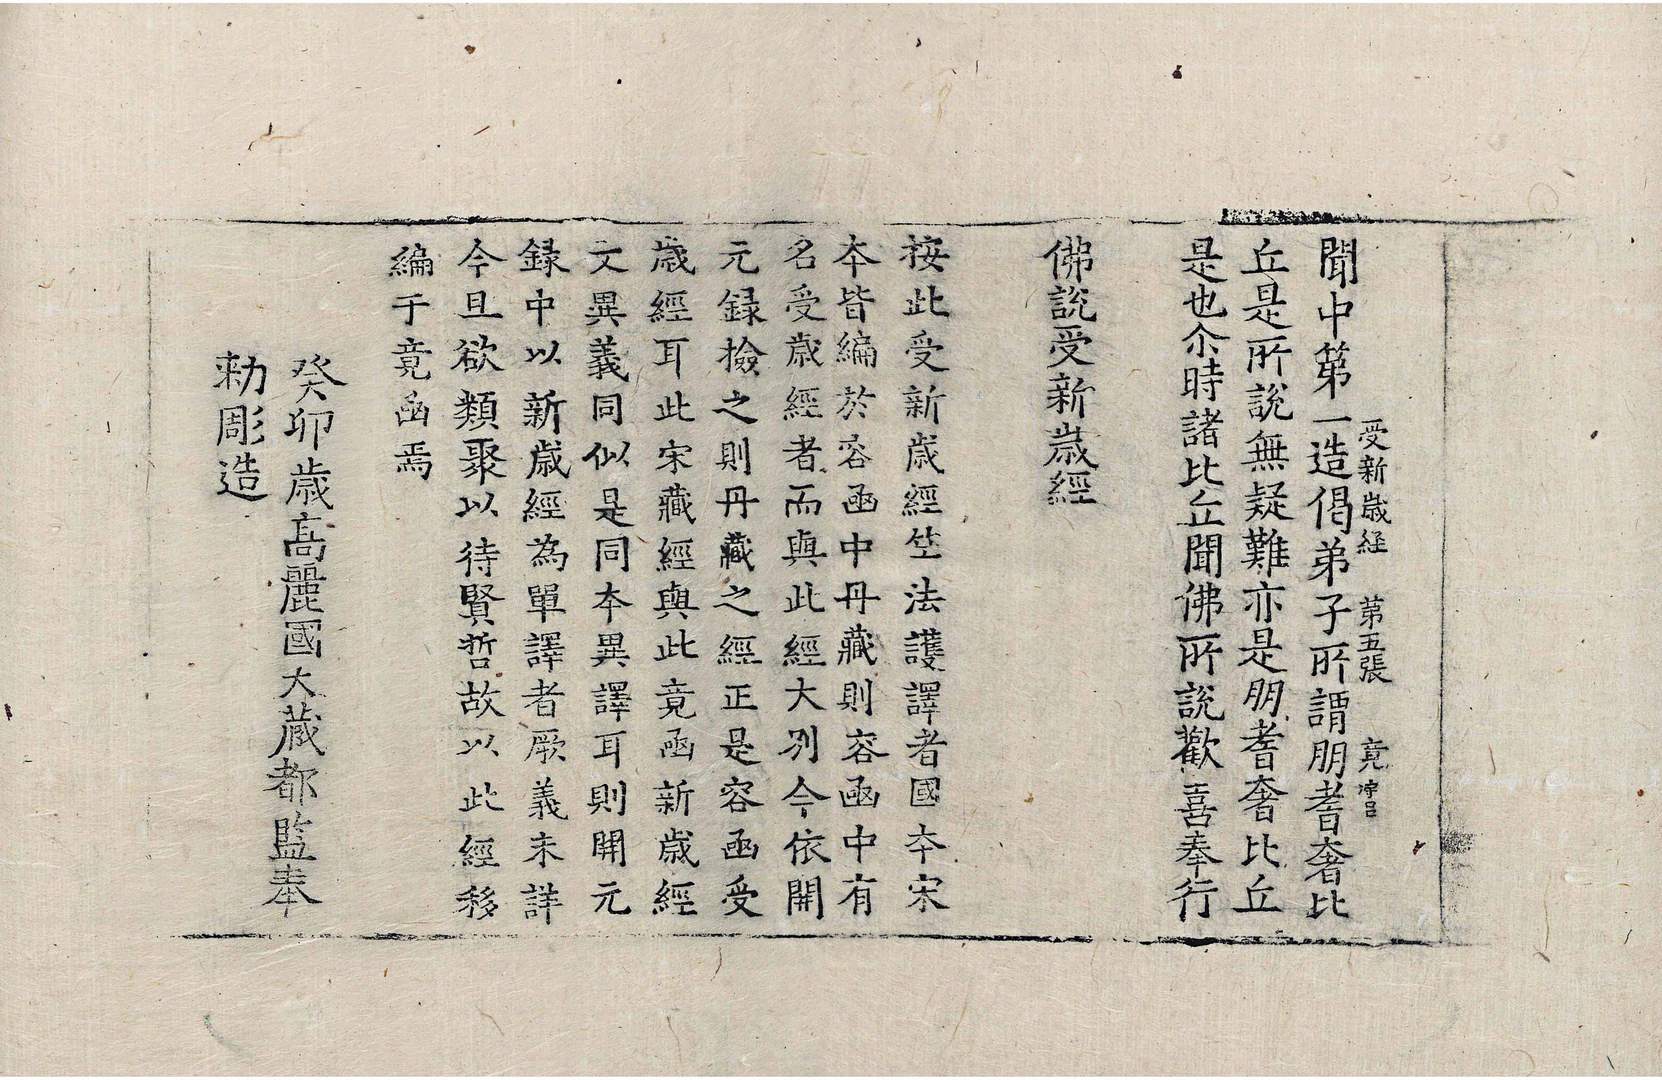 聞中第一造偈弟子所謂朋耆奢比
受新歳経 第五張 竟
丘是所說無疑難亦是朋耆奢比丘
是也尒時諸比丘聞佛所說歡喜奉行
佛說受新歲經
按此受新歲經竺法護譯者國本宋
本皆編於容函中丹藏則容函中有
名受歲經者而與此經大別今依開
元録撿之則丹藏之經正是容函受
歲經耳此宋藏經與此竟函新歲經
文異義同似是同本異譯耳則開元
録中以新歲經為單譯者厥義未詳
今且欲類聚以待賢哲故以此經移
編于竟函焉
癸卯歲高麗國大藏都監奉
勑彫造